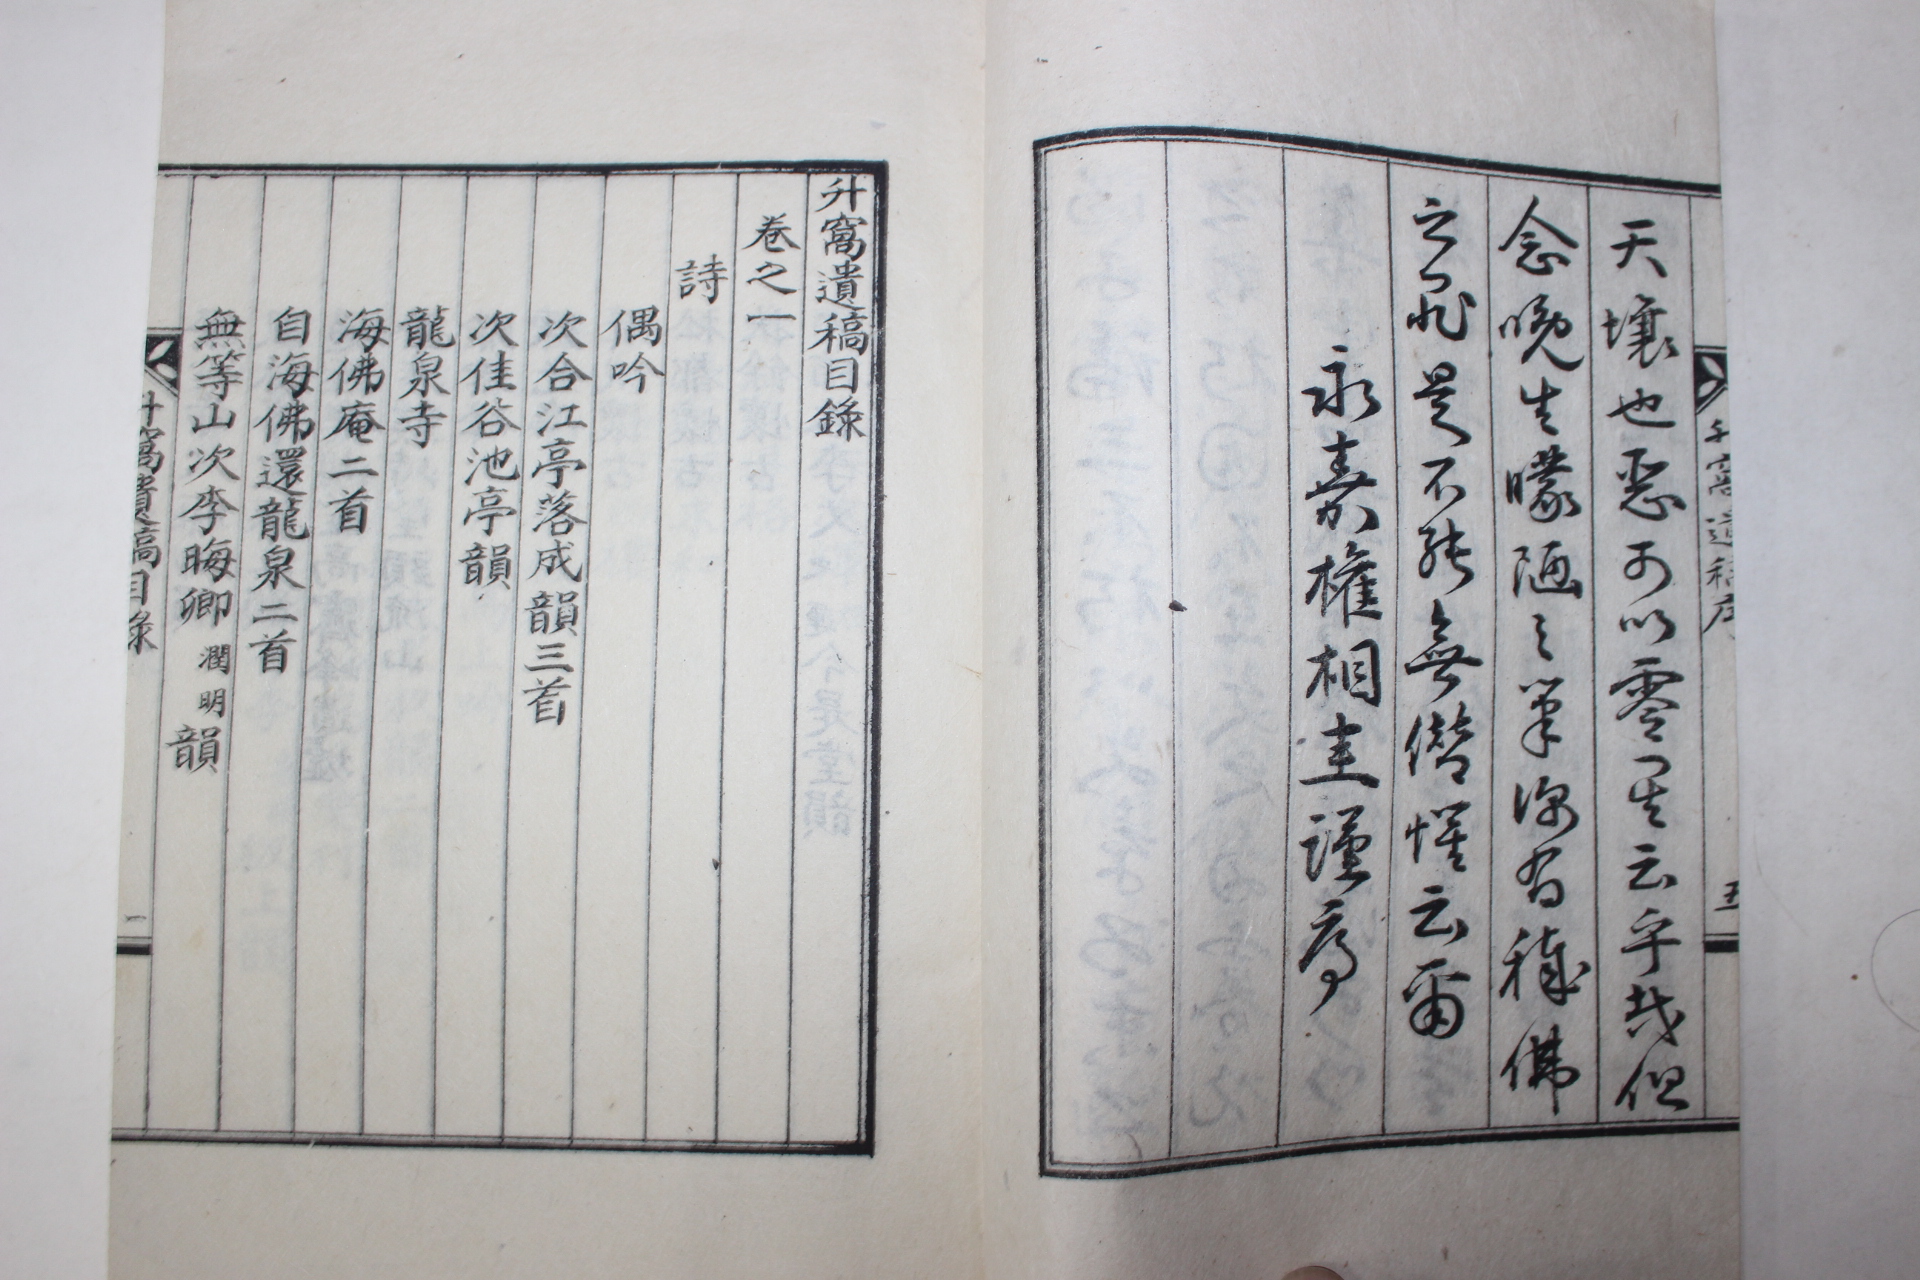 天壤也惡可以零星云乎哉但
念晚生矇陋之筆深有穢佛
之兆是不能無僭惶云爾
永嘉權相圭謹序
升窩遺稿序
五
升窩遺稿目錄
卷之一
詩
偶吟
次合江亭落成韻三首
次佳谷池亭韻
龍泉寺
海佛庵二首
自海佛還龍泉二首
無等山次李晦卿潤明韻
升窩遺稿目錄
一